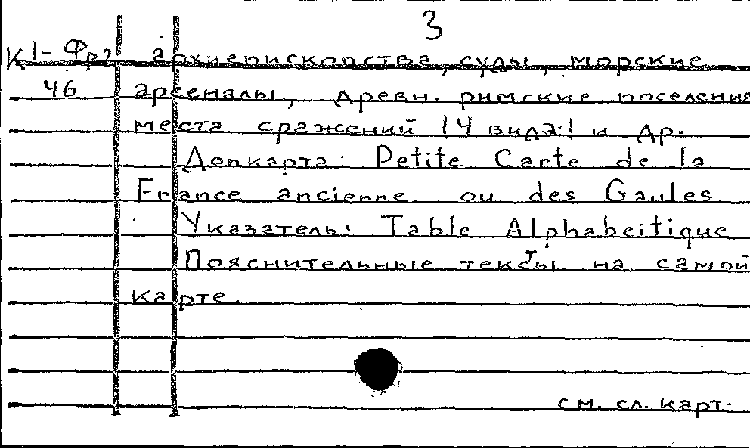 3
К 1-Фр. архиепископства, суды, морские
46 арсеналы, древн. римские поселения
места сражений 14 вида! и др.
Допкарта: Petite Carte de la
France ancienne ou des Gaules
Указатель: Table Alphabeitique
Пояснительные тексты на самой
карте.
см. сл. карт.